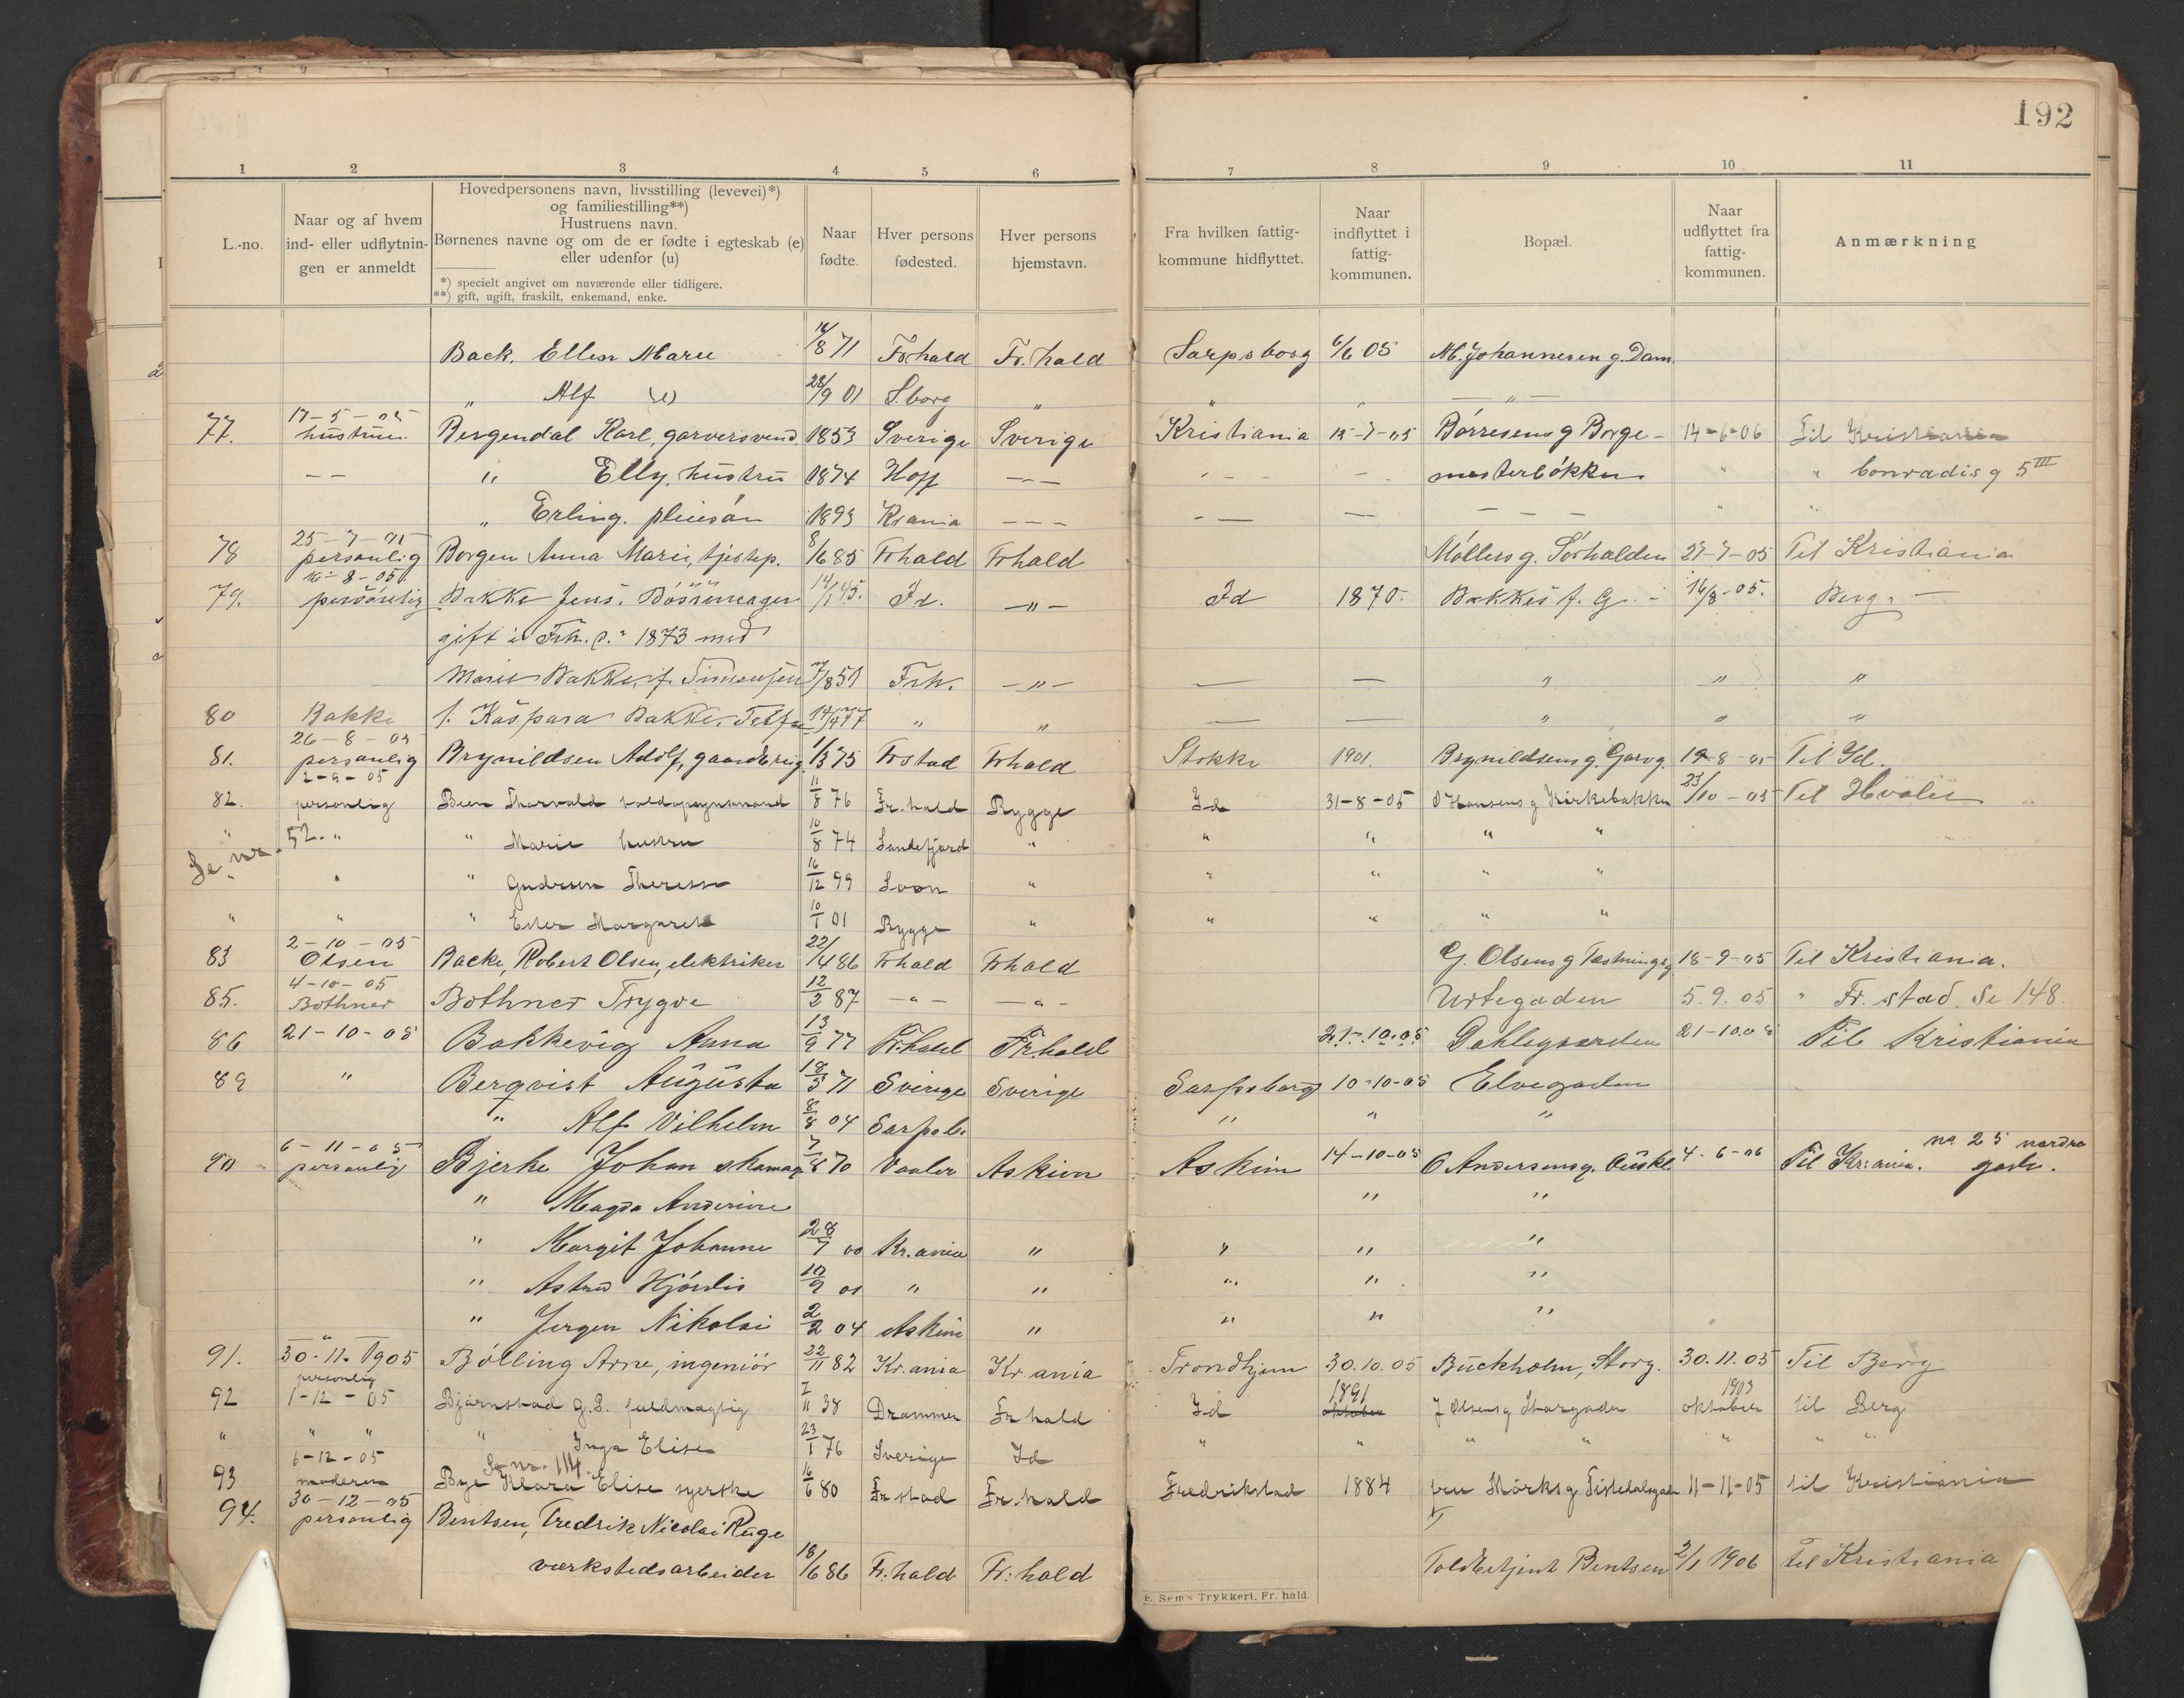 192
1 2 3 4 5 6 7 8 9 10 11
L.-no.
Naar og af hvem ind- eller udflytnin- gen er anmeldt
Hovedpersonens navn, livsstilling (levevei)*)
og familiestilling**)
Hustruens navn.
Børnenes navne og om de er fødte i egteskab (e)
eller udenfor (u)
*) specielt angivet om nuværende eller tidligere.
**) gift, ugift, fraskilt, enkemand, enke.
Naar fødte.
Hver persons fødested.
Hver persons hjemstavn.
Fra hvilken fattig- kommune hidflyttet.
Naar indflyttet i fattig- kommunen.
Bopæl.
Naar udflyttet fra fattig- kommunen.
Anmærkning
Back. Ellen Marie 16/8 71 Fr.hald Fr. hald Sarpsborg 6/6 05 M. Johannesen g. Dam.
" Alf (e) 28/9 01 S.borg " " " — " —
77. 17-5-05 hustruen Bergendal Karl, garversvend 1853 Sverige Sverige Kristiania 15-7-05 Börresens g Borge- 14-6-06 Til Kristiania
— — " Elly, hustru 1874 Hoff — — — mesterbökken " " Conradis g 5 III
" Erling. pleiesön 1893 Kr.ania — — —
78 25-7-05 personlig Borgen Anna Marie, tjestep. 8/6 85 Frhald Frhald Möllers g. Sörhalden 27-7-05 Til Kristiania
79. 16-8-05. personlig Bakke Jens. Bössemager 14/1 45. Id. — " — Id 1870. Bakkes f. G. 16/8-05. Berg.
gift i Frh. 1873 med
Marie Bakke, f. Simensen 7/8 51 Frh. — " — " " "
80 Bakke f. Kaspara Bakke. 14/4 77 " " " " "
81. 26-8-05 personlig Brynildsen Adolf, 1/3 75 Frstad Frhald Stokke 1901. Brynildsens g. Garvg. 19-8-05 Til Id.
82. 2-9-05 personlig Been Thorvald 11/8 76 Fr.hald Rygge Id 31-8-05 O Hansens g Kirkebakken 23/10-05 Til Hvaler
Se nr. 52. " " Marie hustru 10/8 74 Sandefjord " " " " "
" " Gudrun Therese 16/12 99 Soon " " " " "
" " " Ester Margarete 10/1 01 Rygge " " " " "
83 2-10-05 Olsen Backe, Robert Olsen, elektriker 22/4 86 Frhald Frhald G. Olsens g Fæstningsg 18-9-05 Til Kristiania.
85. 4-10-05 Bothner Bothner Trygve 12/2 87 — " — — " — Urtegaden 5.9.05 " Fr. stad. Se 148.
86 21-10-05 Bakkevig Anna 13/9 77 Fr.hald Fr.hald 21-10.05 Dahlsgaarden 21-10.05 Til Kristiania
89 " Berqvist Augusta 18/3 71 Sverige Sverige Sarpsborg 10-10-05 Elvegaden
" Alf Vilhelm 8/8 04 Sarpsb. " " "
90 6-11-05 personlig Bjerke Johan skomag 7/8 70 Vaaler Askim Askim 14-10-05 O Andersens g. 4-6-06 Til Kr:ania. no 25 nordre gade.
" Magda Andrine " "
" Margit Johanne 28/7 00 Kr.ania " " " "
" Astrid Hjördis 10/9 01 " " " " "
" Jergen Nikolai 2/2 04 Askim " " " "
91. 30-11-1905 personlig Bölling Arne, ingeniör 22/11 82 Kr.ania Kr.ania Trondhjem 30.10.05 Buckholm, Storg. 30.11.05 Til Berg
92 1-12-05 Bjørnstad G. S. fuldmægtig 1/11 38 Drammen Fr hald Id 1891 oktober J Olsens g Storgaden 1903 oktober til Berg
" " " " Inga Elise 23/1 76 Sverige Id " " " " " " "
93 6-12-05 moderen Se nr. 114. Bye Klara Elise syerske 16/6 80 Fr.stad Fr.hald Fredrikstad 1884 fru Mørks g Tistedalsgaden 11-11-05 til Kristiania
94. 30-12-05 personlig Bentsen, Fredrik Nicolai Ruge
værkstedsarbeider 18/6 86 Fr:hald Fr:hald Toldbetjent Bentsen 2/1 1906 til Kristiania
E. Sem's Trykkeri, Fr. hald.